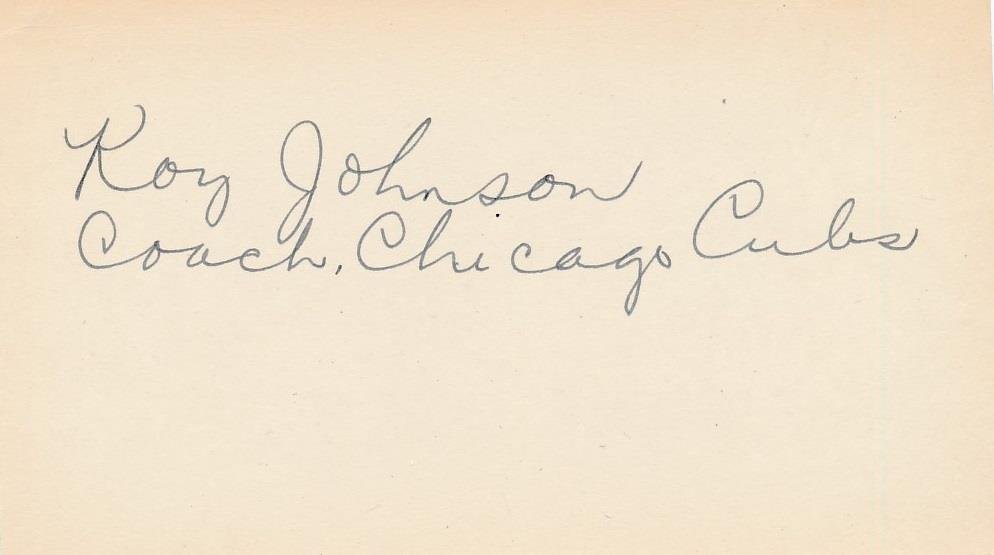 Roy Johnson
Coach, Chicago Cubs